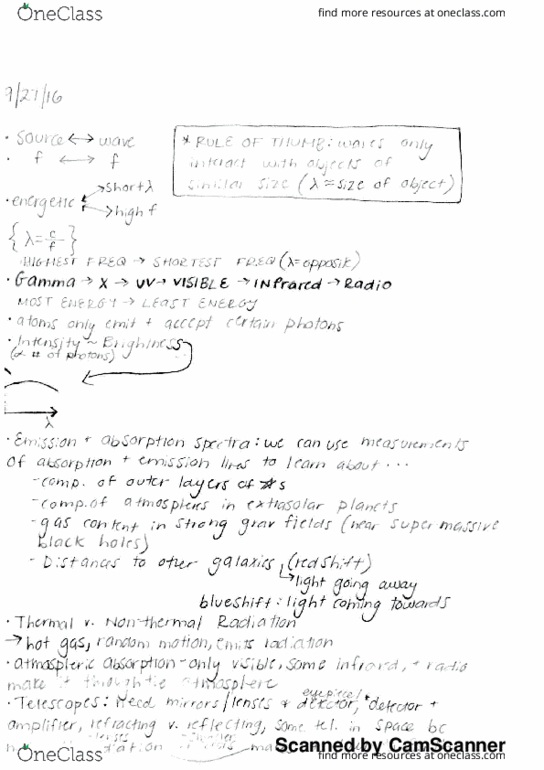 OneClass
find more resources at oneclass.com
9/27/16
• Source ↔ wave
• f ↔ f
* RULE OF THUMB: waves only
interact with objects of
similar size (λ = size of object)
• energetic → short λ
→ high f
{ λ = c/f }
HIGHEST FREQ → SHORTEST FREQ (λ = opposite)
• Gamma → X → UV → VISIBLE → INFrared → Radio
MOST ENERGY → LEAST ENERGY
• atoms only emit + accept certain photons
• Intensity ~ Brighness
(α # of photons)
λ
• Emission + absorption spectra: we can use measurements
of absorption + emission lines to learn about ...
- comp. of outer layers of *s
- comp. of atmosphers in extrasolar planets
- gas content in strong grav fields (near super massive
black holes)
- Distances to other galaxies, (redshift)
↳ light going away
blueshift: light coming towards
• Thermal v. Non-thermal Radiation
→ hot gas, random motion, emits radiation
• atmospheric absorption - only visible, some infrared, + radio
make it through the atmosphere
eyepiece/
• Telescopes: Need mirrors/lenses + detector, detector +
amplifier, refracting v. reflecting, some tel. in space bc
lenses
OneClass
Scanned by CamScanner
find more resources at oneclass.com